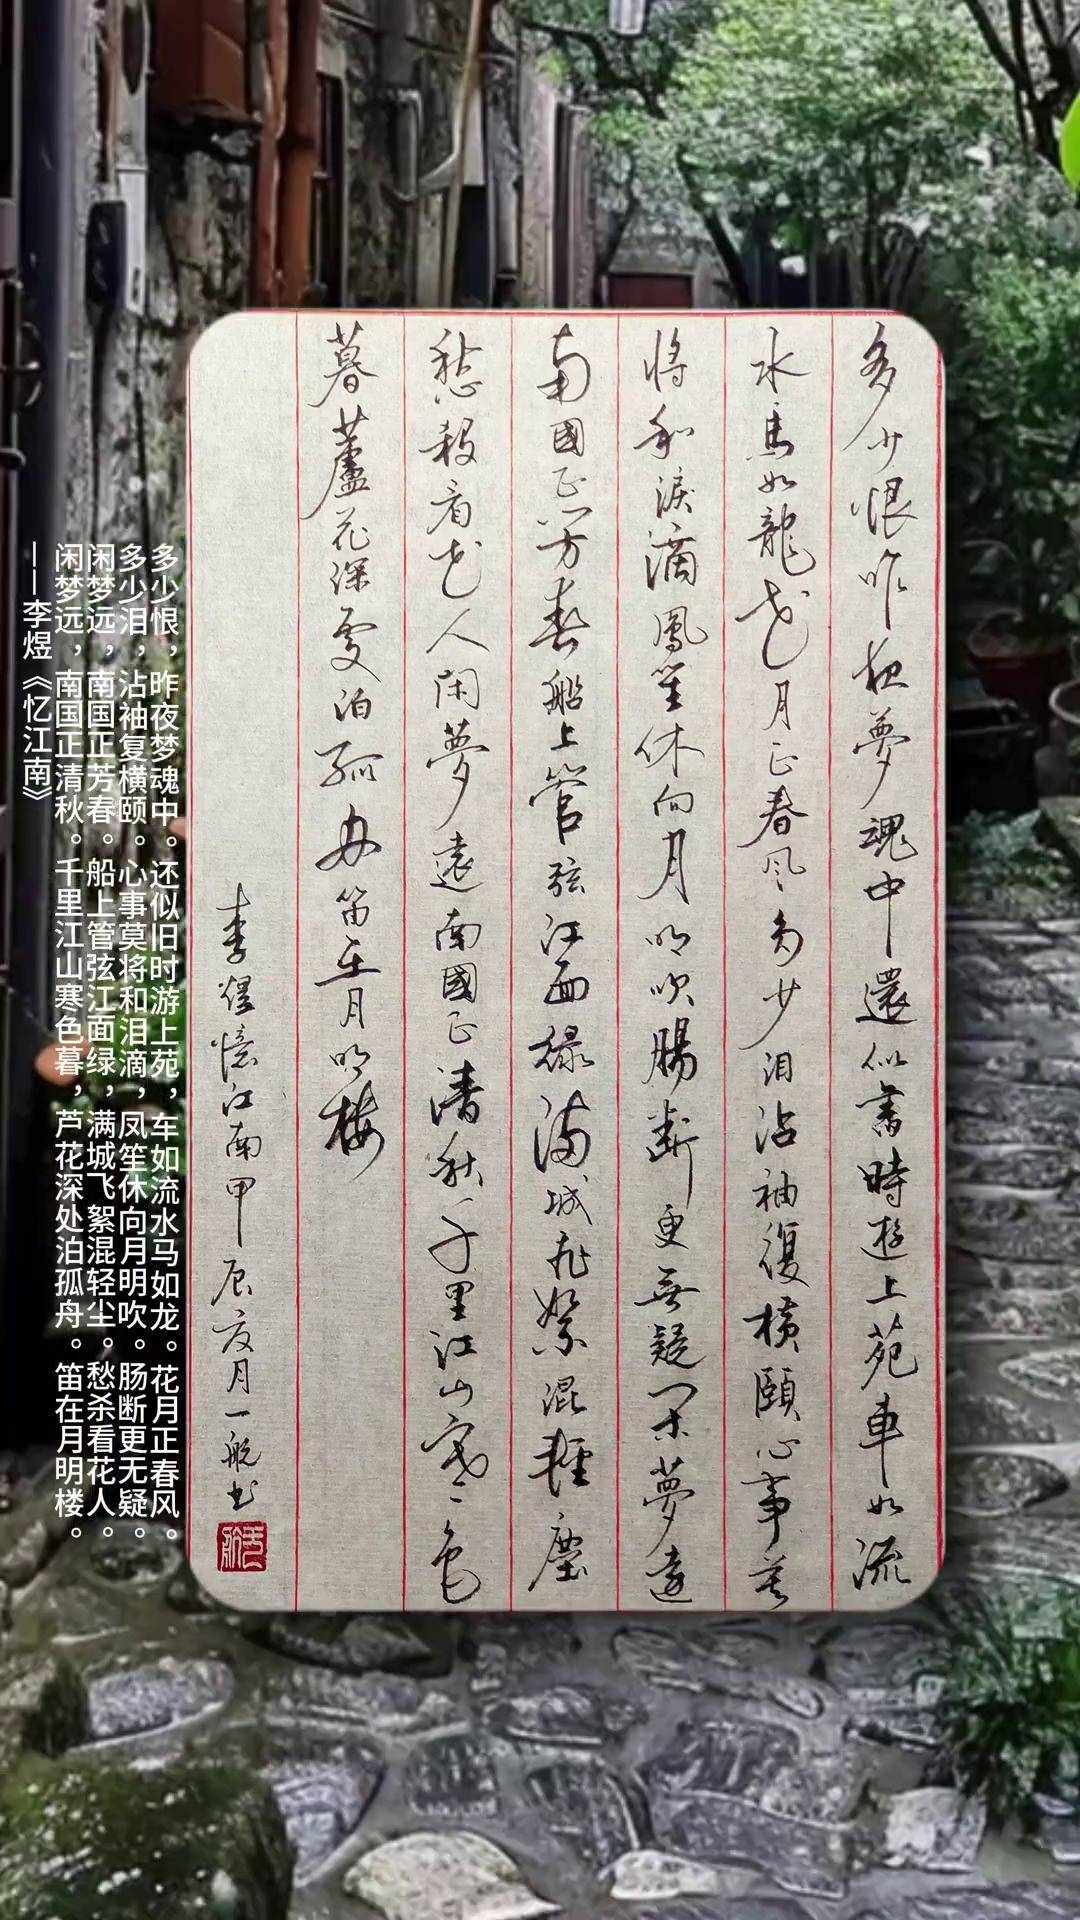 多少恨昨夜夢魂中還似舊時遊上苑車如流
水馬如龍花月正春風多少泪沾袖復横頤心事莫
將和淚滴鳳笙休向月明吹腸斷更無疑闲夢遠
南國正芳春船上管弦江面緑满城飛絮混輕塵
愁殺看花人閑夢遠南國正清秋千里江山寒色
暮蘆花深處泊孤舟笛在月明樓
李煜憶江南甲辰夏月一航书
多少恨，昨夜梦魂中。还似旧时游上苑，车如流水马如龙。花月正春风。
多少泪，沾袖复横颐。心事莫将和泪滴，凤笙休向月明吹。肠断更无疑。
闲梦远，南国正芳春。船上管弦江面绿，满城飞絮混轻尘。愁杀看花人。
闲梦远，南国正清秋。千里江山寒色暮，芦花深处泊孤舟。笛在月明楼。
——李煜《忆江南》